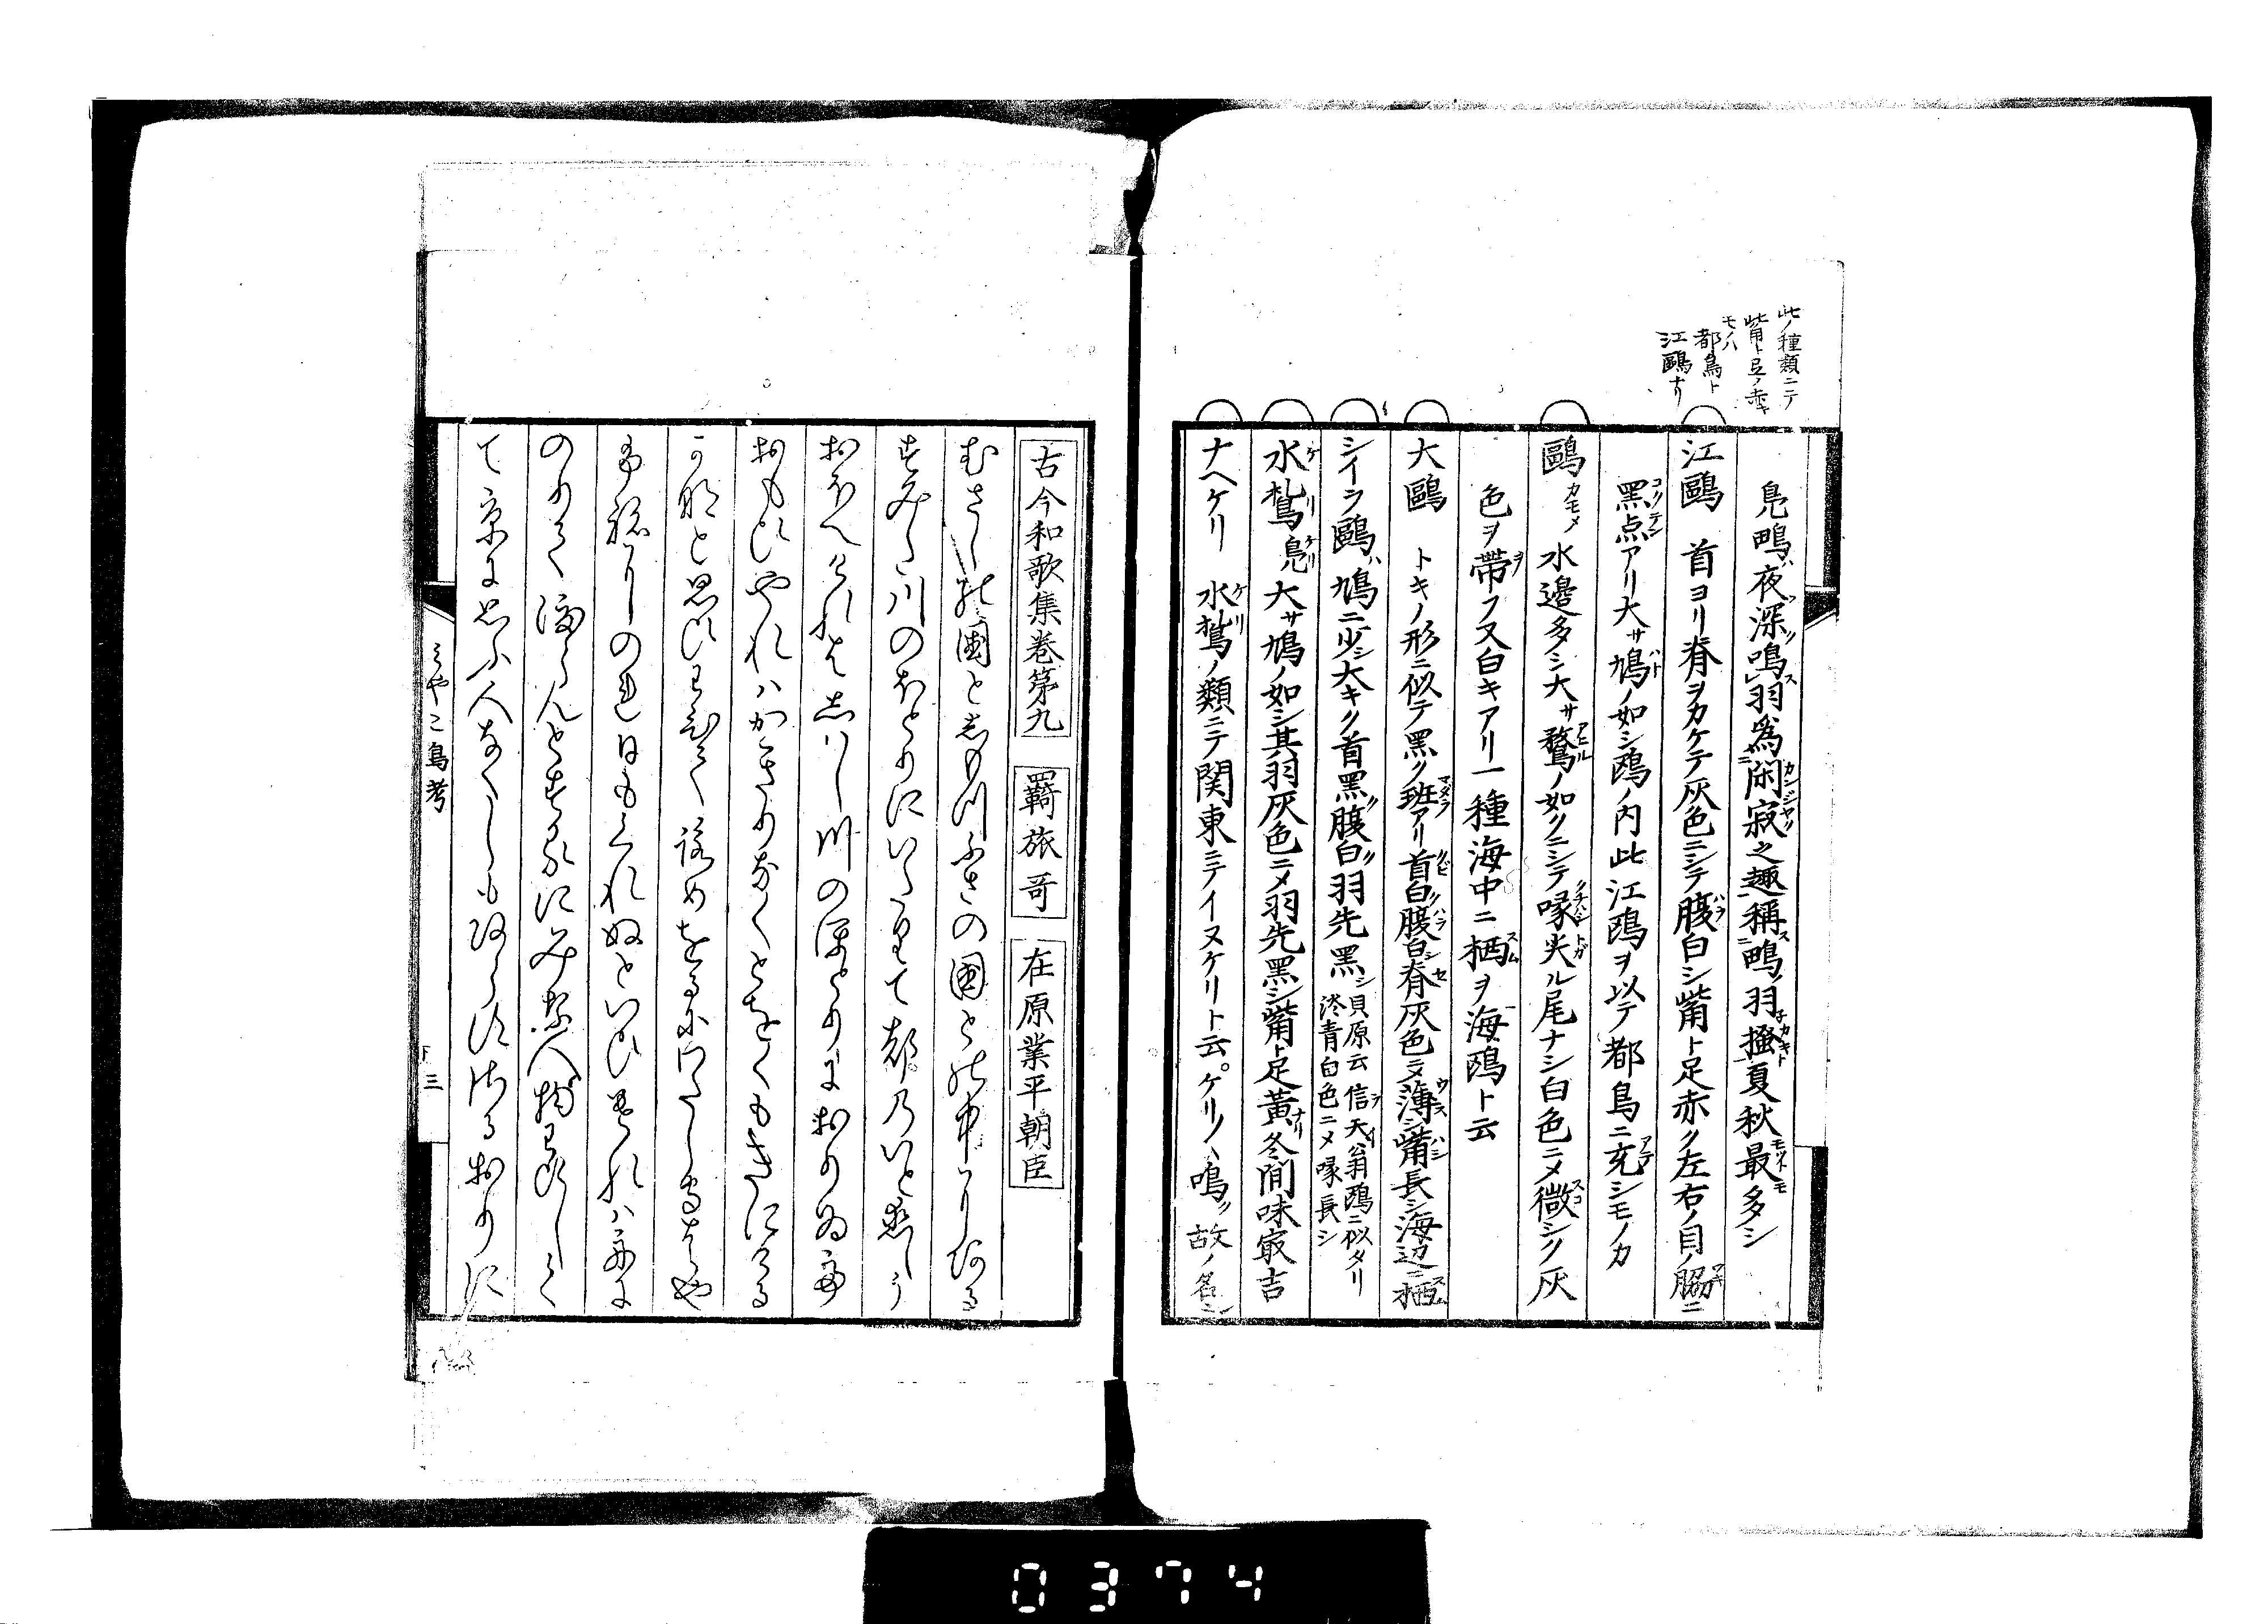 此ノ種類ニテ
觜ト足ノ赤キ
モノハ
都鳥ト
江鷗ナリ
鳧鴫ハ夜深ク鳴ス羽爲閑寂之趣稱ス鴫ノ羽搔ト夏秋最多シ
江鷗　首ヨリ脊ヲカケテ灰色ニシテ腹白シ觜ト足赤ク左右ノ目ノ脇ニ
黒点アリ大サ鳩ノ如シ鷗ノ内此江鷗ヲ以テ都鳥ニ充シモノカ
鷗カモメ　水邊多シ大サ鶩ノ如クニシテ喙尖ル尾ナシ白色ニメ微シク灰
色ヲ帶フ又白キアリ一種海中ニ栖ヲ海鷗ト云
大鷗　トキノ形ニ似テ黒ク班アリ首白ク腹白シ脊灰色ニメ薄シ觜長シ海辺ニ栖
シイラ鷗ハ鳩ニ少シ大キク首黒ク腹白ク羽先黒シ
貝原云信天翁鷗ニ似タリ
淡青白色ニメ喙長シ
水鵞鳧　大サ鳩ノ如シ其羽灰色ニメ羽先黒シ觜ト足黃ナリ冬間味㝡吉
ナヘケリ　水鵞ノ類ニテ関東ニテイヌケリト云ケリ〱鳴ク故ノ名ニシ
古今和歌集巻第九　羇旅哥　在原業平朝臣
むさしの國としもつふさの國との中にある
すみた川のほとりにいたりて都のいと恋しう
おほへけれはしはし川のほとりにおりゐて
おもひやれはかきりなくとをくもきにける
かなと思ひわひて詠めをるにわたしもりはや
舟にのれ日もくれぬといひけれは舟に
のりて渡らんとするにみな人物わひしく
て京に思ふ人なくしもあらすさるおりに
みやこ鳥考
下　三
0374